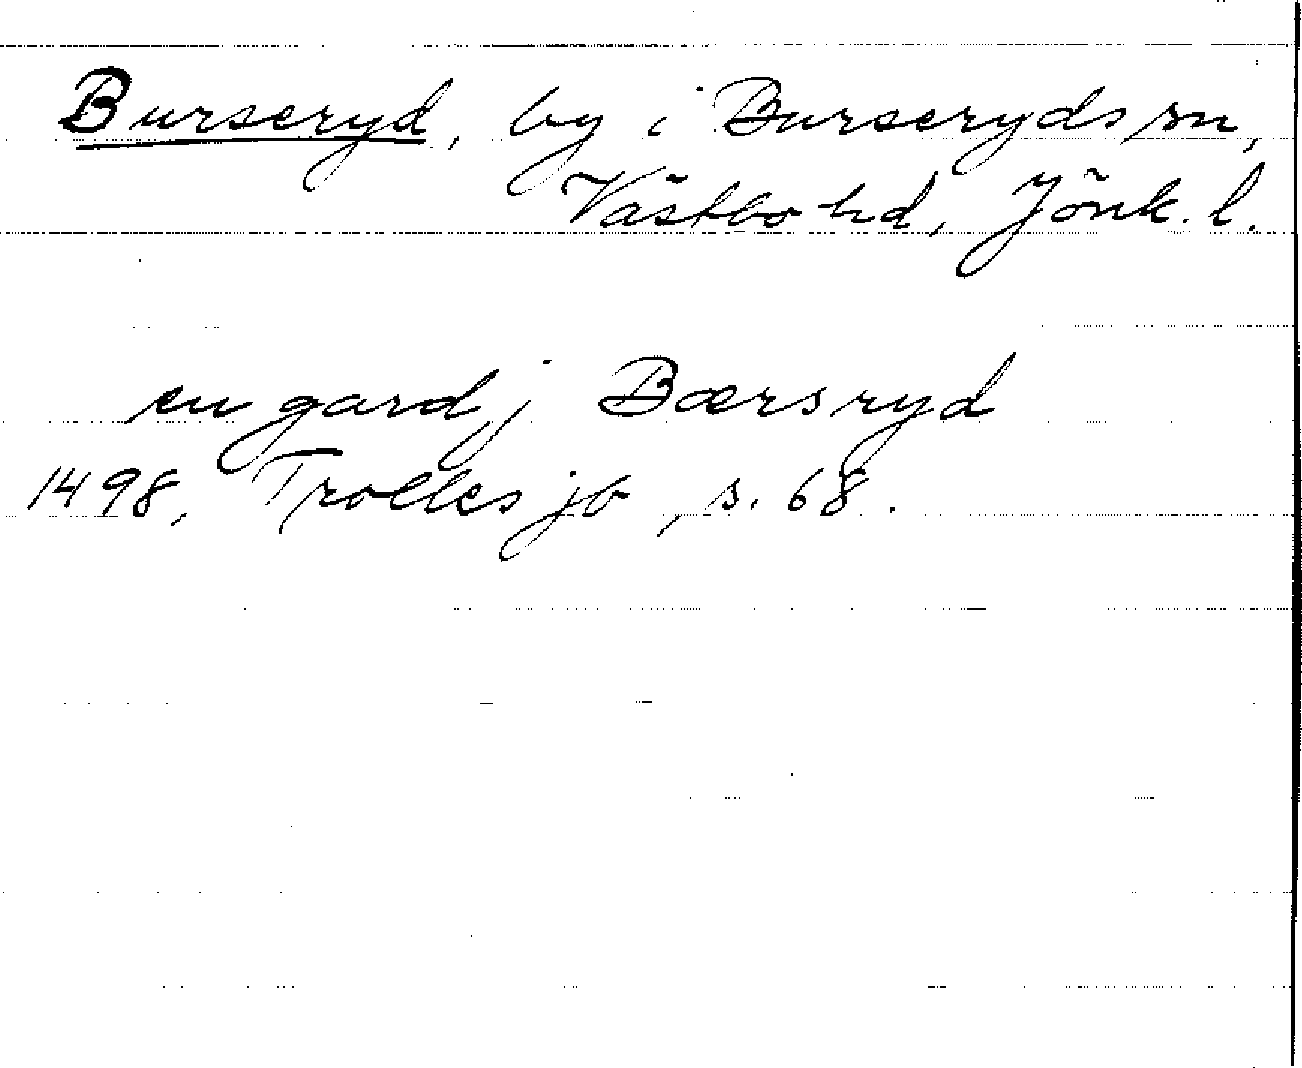 Burseryd, by i Burseryds sn,
Västbo hd, Jönk. l.
en gard j Bærsryd
1498, Trolles jb, s. 68.